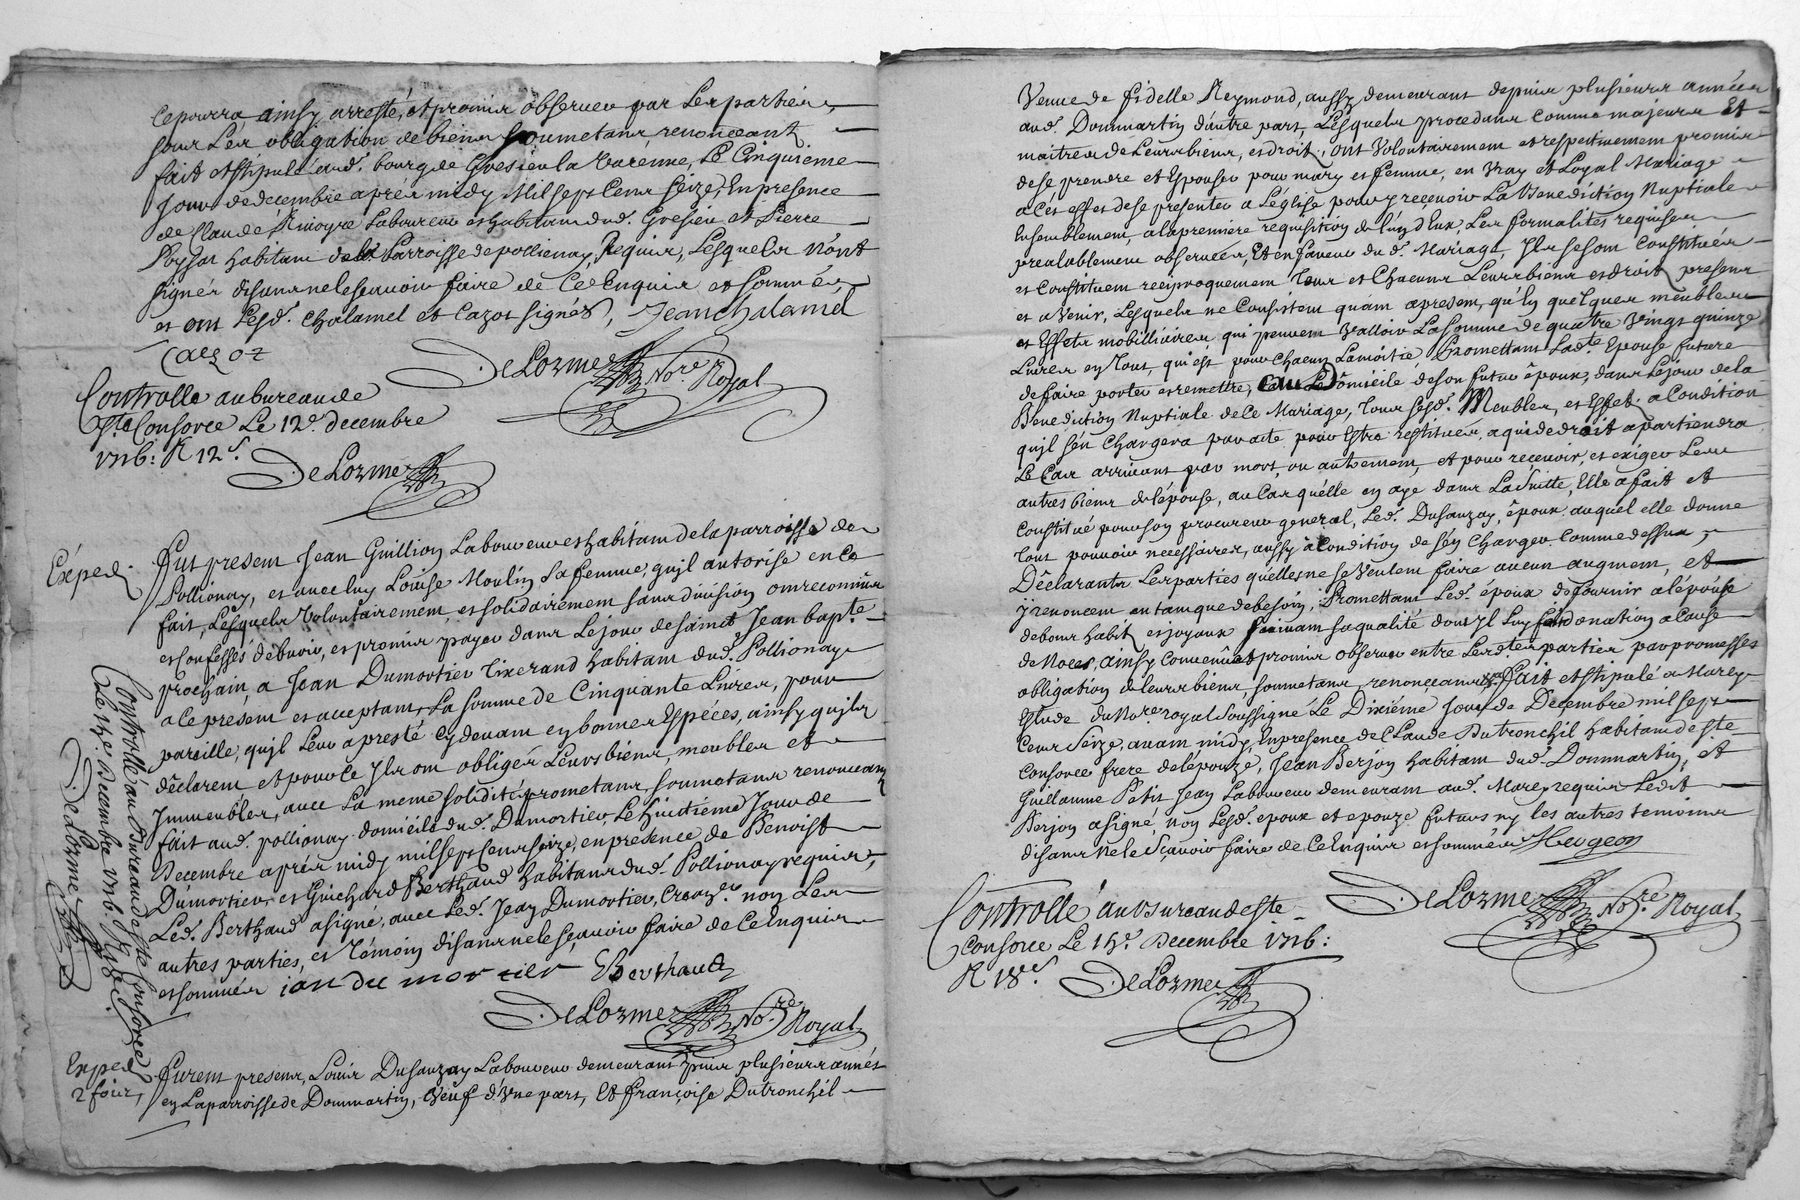 Ce pourra ainsy arresté, et promis observer par Les parties,
sous Les obligation de biens soumetans, renonceant
fait et stipulé aud. bourg de Gresieu la Varenne, Le Cinquieme
Jour de decembre apres midy Mil sept Cens seize, En presence
de Claude Laboureur et habitans dud. Gresieu et Pierre
habitant de la Parroisse de pollionay, Requis, Lesquels n'ont
signés disans ne le scavoir faire de Ce Enquis et sommés,
et ont Lesd. Chalamel et Cazot signés, Jean chalamel
Cazot
De Lorme Nore. Royal
Controllé au bureau de
Ste Consorce Le 12e. decembre
1716: R 12s.
De Lorme
Exped.
Fut present Jean Guillion Laboureur et habitant de la parroisse de
Pollionay, et avec luy Louise Moulin sa femme, qu'il autorise en Ce
fait, Lesquels Volontairement, et solidairement sans division ont reconnus
et Confessés debvoir, et promis payer dans Le jour de saint Jean bapte.
prochain, a Jean Dumortier Tixerand habitant dud. Pollionay
a Ce present et acceptant La somme de Cinquante Livres, pour
pareille, qu'il Leur a presté cy devant en bonnes Espéces, ainsy qu'ils
déclarent et pour Ce Ils ont obligés Leurs biens, meubles et
Immeubles, avec La meme solidité, prometans, soumetans renonceans
fait aud. pollionay domicile dud. Dumortier, Le huictiéme Jour de
Decembre aprés midy mil sept Cens seize, en presence de Benoist
Dumortier, et Guichard Berthaud habitans dud. Pollionay requis,
Led. Berthaud a signé, avec Led. Jean Dumortier, Creanr. non Les
autres parties, et Témoin disans ne le sçavoir faire de Ce Enquis
et sommés ian du mortier Berthaud
De Lorme Nore. Royal
Controllé au Bureau de Ste Consorce
Le decembre 1716. R
De Lorme
Exped.
2 fois,
Furent presens, Louis Dusauzay Laboureur demeurant depuis plusieurs années
en La parroisse de Dommartin, Veuf d'Vne part, Et françoise Dutronchil
Veuve de fidelle Reymond, aussy demeurant depuis plusieurs années
aud. Dommartin d'autre part, Lesquels procedans Comme majeurs Et
maitres de Leurs biens, et droits, ont Volontairement et respectivement promis
de se prendre et Espouser pour mary et femme, en Vray et Loyal Mariage
a Cet effet de se presenter a L'église pour y recevoir La Benediction Nuptiale
Ensemblement, a la premiere requisition de l'un d'Eux, Les formalités requises
prealablement observées, Et en faveur du d. Mariage, Ils se sont Constitués
et Constituent reciproquement Tous et Chacuns Leurs biens et droits presens
et a Venir, Lesquels ne Consistent quant apresent, qu'en quelques meubles
et Effets mobilliaires qui peuvent Valloir La somme de quatre Vingt quinze
Livres en Tout, qui est pour Chacun La moitié Promettant Lade. Epouse future
de faire porter et remettre, au Domicile de son futur époux, dans Le jour de la
Benediction Nuptiale de Ce Mariage, Tous sesd. Meubles, et Effets a Condition
qu'il s'en Chargera par acte pour Estre restitués, a qui de droit apartiendra
Le Cas arrivant par mort, ou autrement, et pour recevoir, et exiger Les
autres biens de l'épouse, au Cas qu'elle en aye dans La suitte, Elle a fait et
Constitué pour son procureur general, Led. Dusauzay, époux auquel elle donne
Tout pouvoir necessaires, aussy a Condition de s'en Charger Comme dessus,
Déclarants Les parties qu'elles ne se Veulent faire aucun augment, et
y renoncent en tant que de besoin, Promettant Led. époux de fournir a l'épouse
de bons habit, et joyaux suivant sa qualité dont Il Luy fait donation a Cause
de Noces, ainsy Convenu et promis observer entre Lesdtes. parties par promesses
obligation de leurs biens, soumetans, renonçeans Fait et stipulé a Marcy
Estude du Nore. royal soussigné Le Dixiéme Jour de Decembre mil sept
Cens Seize, avant midy, En presence de Claude Dutronchil habitant de ste
Consorce frere de l'épouze, Jean Berjon habitant dud. Dommartin, et
Guillaume Petit Jean Laboureur demeurant aud. Marcy requis Ledit
Berjon a signé, non Lesd. epoux et epouze futurs ny les autres temoins
disans ne le Sçavoir faire de Ce Enquis et sommés
De Lorme Nore. Royal
Controllé au Bureau de ste
Consorce Le Decembre 1716:
R 18s.
De Lorme